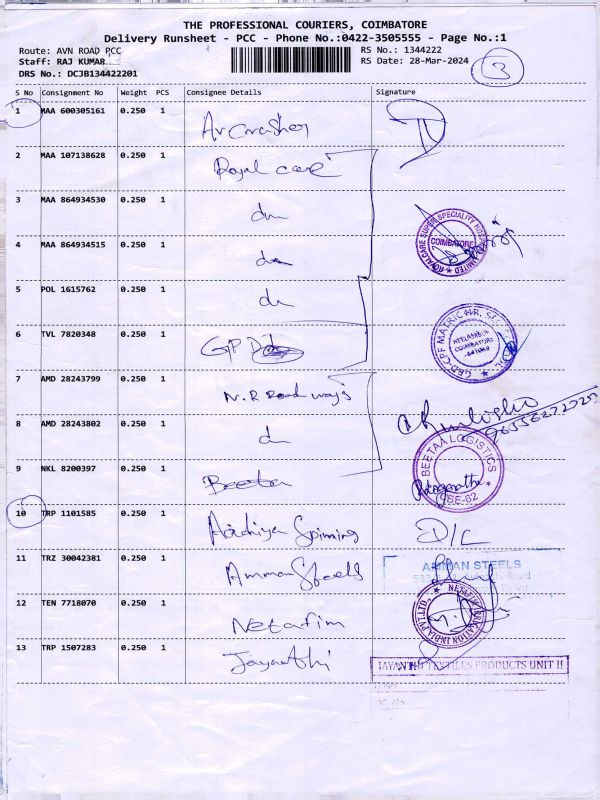 THE PROFESSIONAL COURIERS, COIMBATORE
Delivery Runsheet - PCC - Phone No.:0422-3505555 - Page No.:1
Route: AVN ROAD PCC RS No.: 1344222
Staff: RAJ KUMAR RS Date: 28-Mar-2024 3
DRS No.: DCJB134422201
S No Consignment No Weight PCS Consignee Details Signature
1 MAA 600305161 0.250 1
2 MAA 107138628 0.250 1 Royal care
3 MAA 864934530 0.250 1 do
4 MAA 864934515 0.250 1 do
ROYALCARE SUPER SPECIALITY HOSPITAL LIMITED
COIMBATORE
5 POL 1615762 0.250 1 do
6 TVL 7820348 0.250 1 GPD
COIMBATORE
7 AMD 28243799 0.250 1 N.R Roadways
8 AMD 28243802 0.250 1 do
9 NKL 8200397 0.250 1 Beeta
BEETAA LOGISTICS
10 TRP 1101585 0.250 1 Spinning D/L
11 TRZ 30042381 0.250 1 Amman Steels
AMMAN STEELS
12 TEN 7718070 0.250 1 Netafim
NETAFIM IRRIGATION INDIA PVT.LTD.
13 TRP 1507283 0.250 1 Jayanthi
JAYANTHI TEXTILES PRODUCTS UNIT II